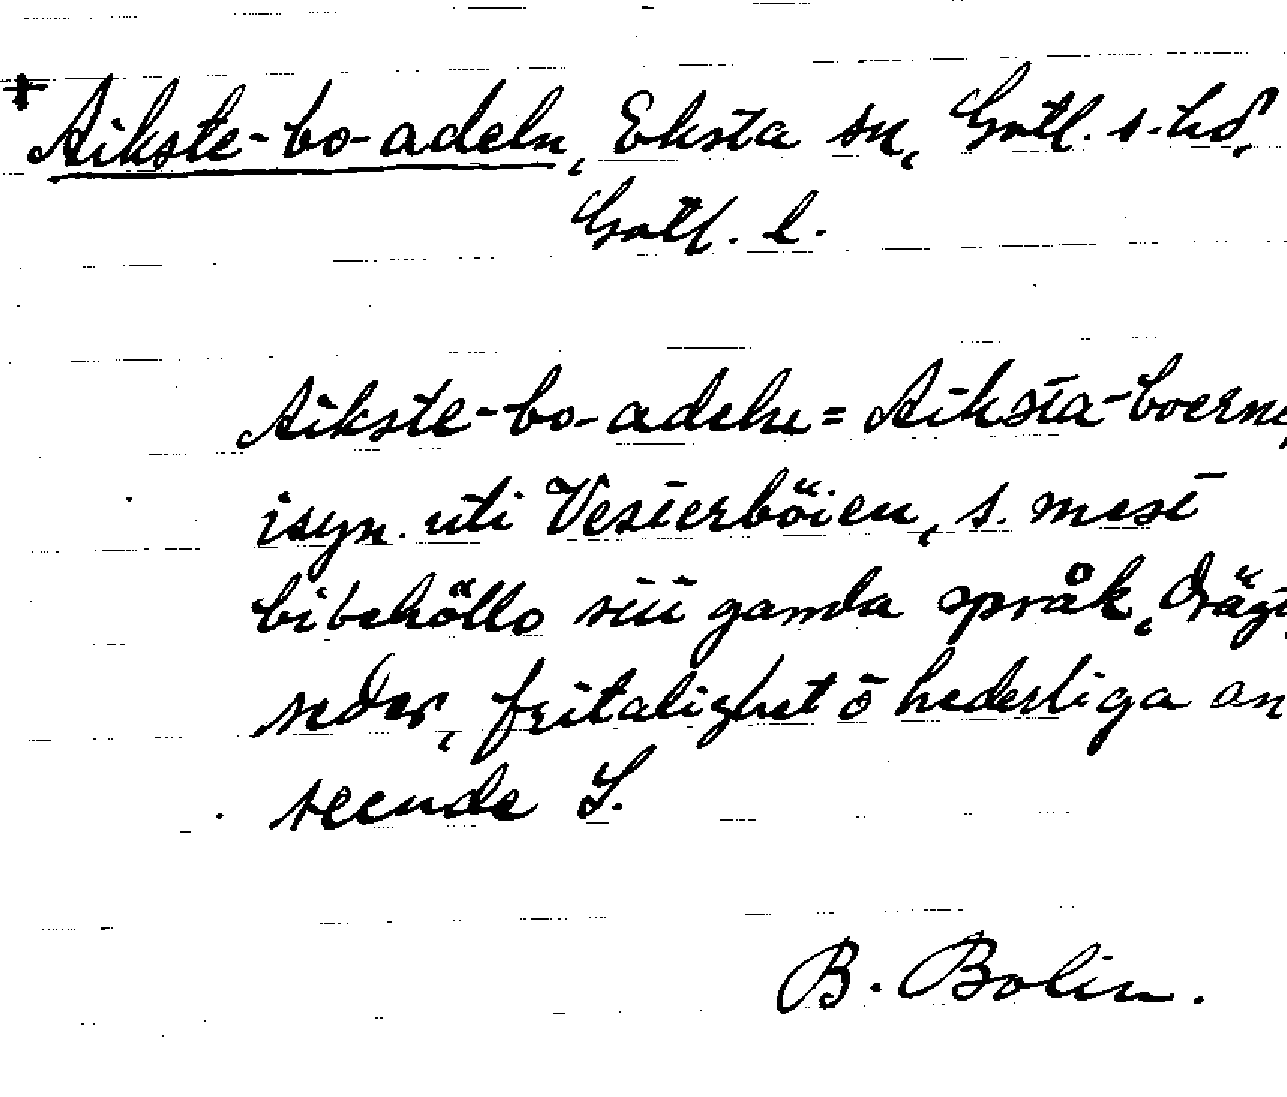 + Aikste-bo-adeln, Eksta sn, Gotl. s. hd,
Gotl. l.
Aikste-bo-adeln = Aiksta-boerne,
isyn. uti Vesterböien, s. mest
bibehöllo siü gamla språk, drägt
seder, fritalighet ō hederliga an
seende S.
B. Bolin.